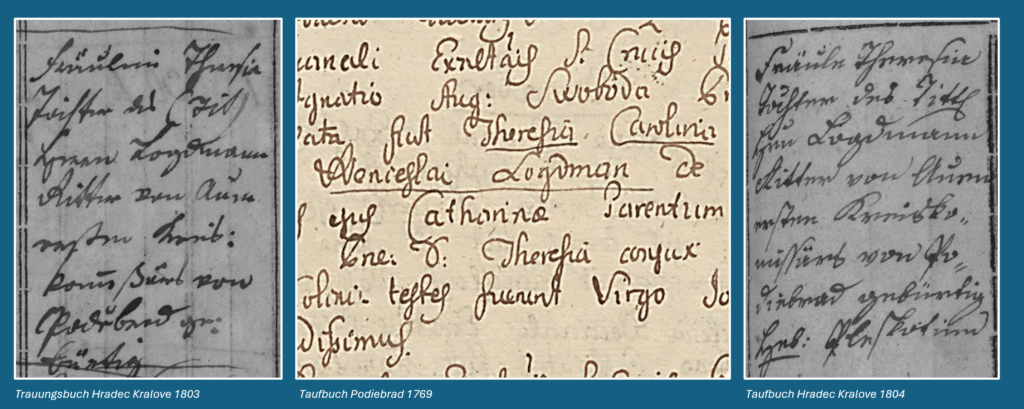 Fräulein Theresia
Tochter des (Tit)
Herrn Logdmann
Ritter von Auen
ersten Kreis:
kommissärs von
Podiebrad ge:
bürtig
Exaltaõis S. Crucis
gnatio Aug: Swoboda
ata fuit Theresia Carolina
Wenceslai Logdman De
ejus Catharinæ Parentum
Gne: D: Theresia conjux
testes fuerunt Virgo Jo
Dissimus.
Fräule Theresia
Tochter des Titl
Hrn Logdmann
Ritter von Auen
ersten Kreisko-
missärs von Po-
diebrad gebürtig
Geb: Pleskotinn
Trauungsbuch Hradec Kralove 1803
Taufbuch Podiebrad 1769
Taufbuch Hradec Kralove 1804